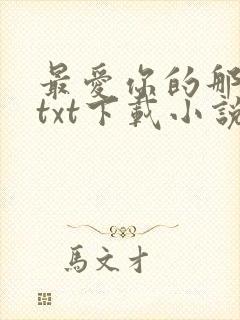 最愛你的那
txt下載小說
馬文才